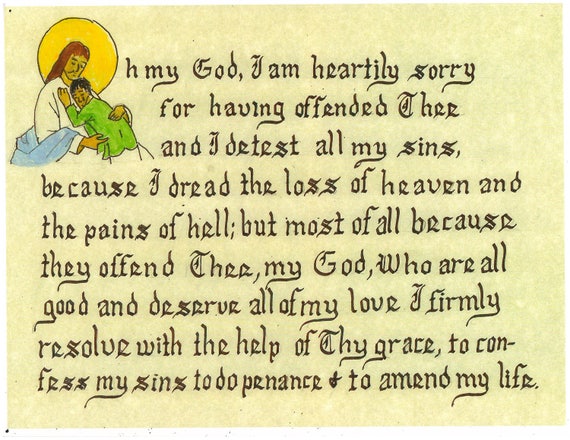 h my God, I am heartily sorry
for having offended Thee
and I detest all my sins,
because I dread the loss of heaven and
the pains of hell; but most of all because
they offend Thee, my God, Who are all
good and deserve all of my love I firmly
resolve with the help of Thy grace, to con-
fess my sins to do penance & to amend my life.